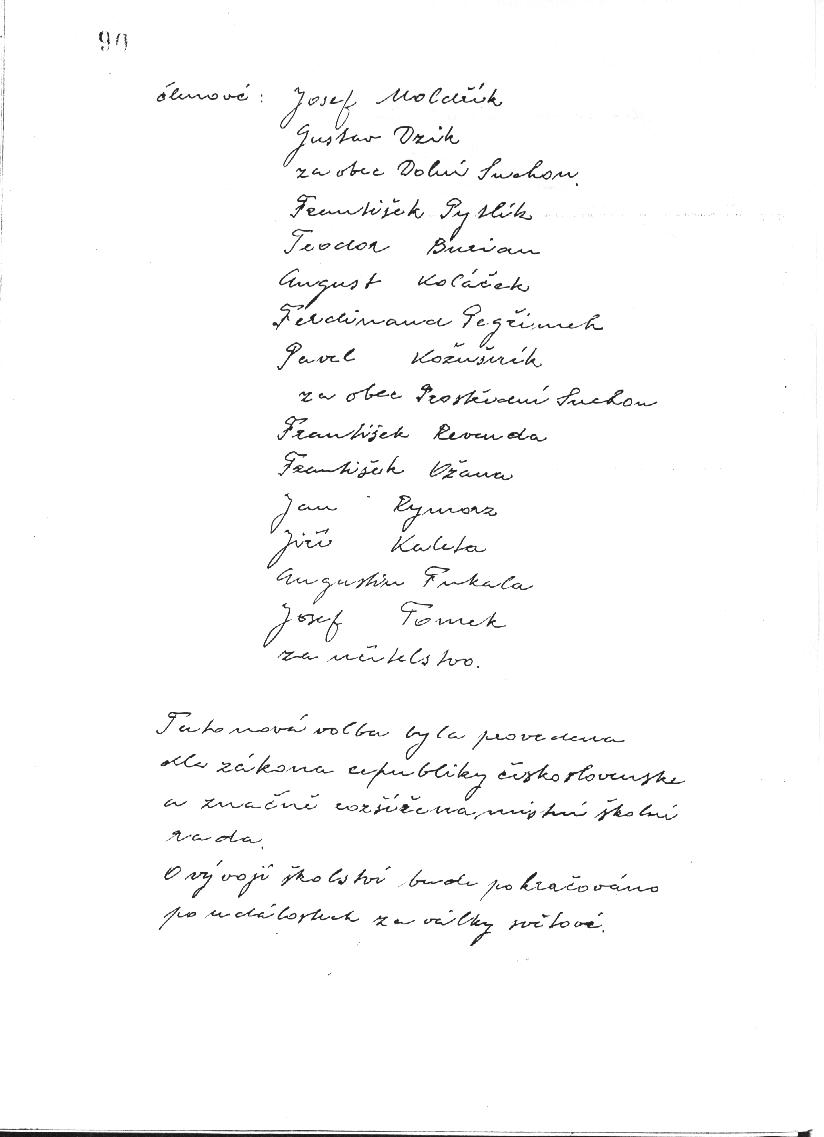 90
členové: Josef Moldřík
Gustav Dzik
za obec Dolní Suchou.
František Pytlík
Teodor Burian
August Koláček
Ferdinand Pegřimek
Pavel Kožušník
za obec Prostřední Suchou
František Revenda
František Vžana
Jan Rymorz
Jiří Kaleta
Augustin Fukala
Josef Tomek
za učitelstvo.
Tato nová volba byla provedena
dle zákona republiky československé
a značně rozšířena místní školní
rada.
O vývoji školství bude pokračováno
po událostech za války světové.